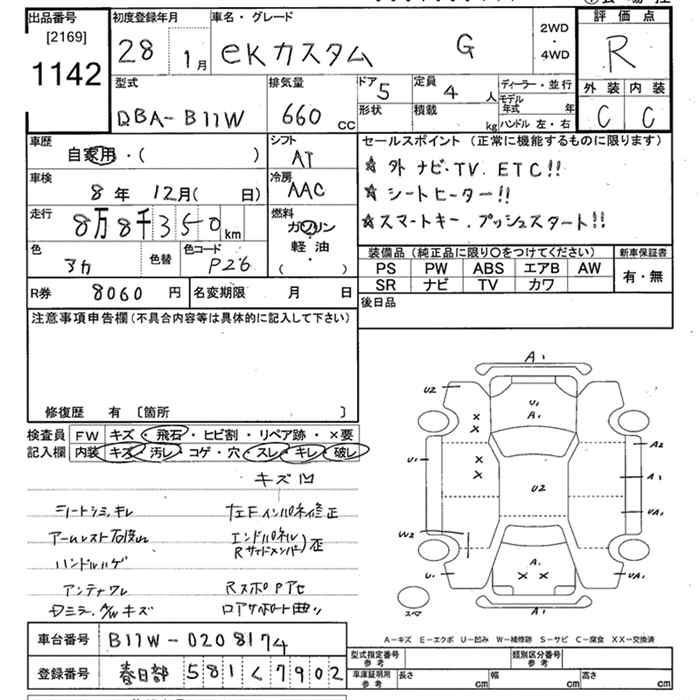 出品番号
[2169]
1142
初度登録年月
28 1月
車名・グレード
eKカスタム G
2WD
・
4WD
評価点
R
外装 内装
C C
型式
DBA-B11W
排気量
660 CC
ドア 5
形状
定員 4 人
積載 kg
ディーラー・並行
モデル年式 年
ハンドル 左・右
車歴
自家用・( )
シフト
AT
車検
8年 12月( 日)
冷房
AAC
走行
8万8千350km
燃料
ガソリン
・
軽油
( )
色
アカ
色替
色コード
P26
セールスポイント (正常に機能するものに限ります)
☆外ナビ・TV. ETC!!
☆シートヒーター!!
☆スマートキー.プッシュスタート!!
装備品 (純正品に限り〇をつけてください)
PS PW ABS エアB AW
SR ナビ TV カワ
新車保証書
有・無
R券 8060 円
名変期限 月 日
後日品
注意事項申告欄(不具合内容等は具体的に記入して下さい)
修復歴 有 〔箇所 〕
検査員記入欄
FW キズ・飛石・ヒビ割・リペア跡・×要
内装 キズ・汚レ・コゲ・穴・スレ・キレ・破レ
キズ凹
シートシミ.キレ
ハンドルハゲ
エンドパネル
Rサイドメンバー)歪
A1
U2
U1
A1
U1
A2
A1
U2
UA1
W2
A1
U1
UA1
A1
スペア
A-キズ E-エクボ U-凹み W-補修跡 S-サビ C-腐食 XX-交換済
車台番号 B11W-0208174
登録番号 春日部 581く7902
型式指定番号
参考
類別区分番号
参考
車庫証明用
参考
長さ cm
幅 cm
高さ cm